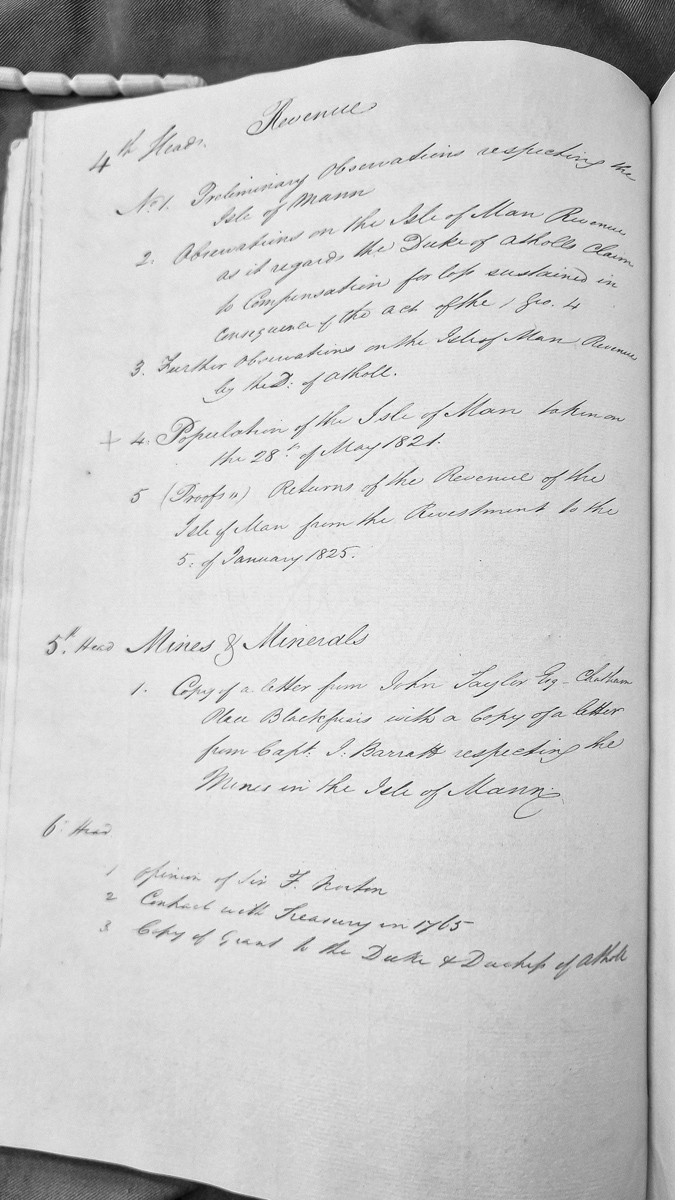 4th Head. Revenue
No. 1. Preliminary Observations respecting the
Isle of Mann
2. Observations on the Isle of Man Revenue
as it regards the Duke of Atholls Claim
to Compensation for loss sustained in
consequence of the act of the 1 Geo. 4
3. Further Observations on the Isle of Man Revenue
by the D: of Atholl.
+ 4. Population of the Isle of Man taken on
the 28th of May 1821.
5 (Proofs ) Returns of the Revenue of the
Isle of Man from the Revestment to the
5: of January 1825.
5th Head Mines & Minerals
1. Copy of a letter from John Taylor Esq - Chatham
Place Blackfriars with a Copy of a letter
from Capt. J: Barratt respecting the
Mines in the Isle of Mann
6: Head
1 Opinion of Sir F. Norton
2 Contract with Treasury in 1765
3 Copy of Grant to the Duke & Duchess of Atholl